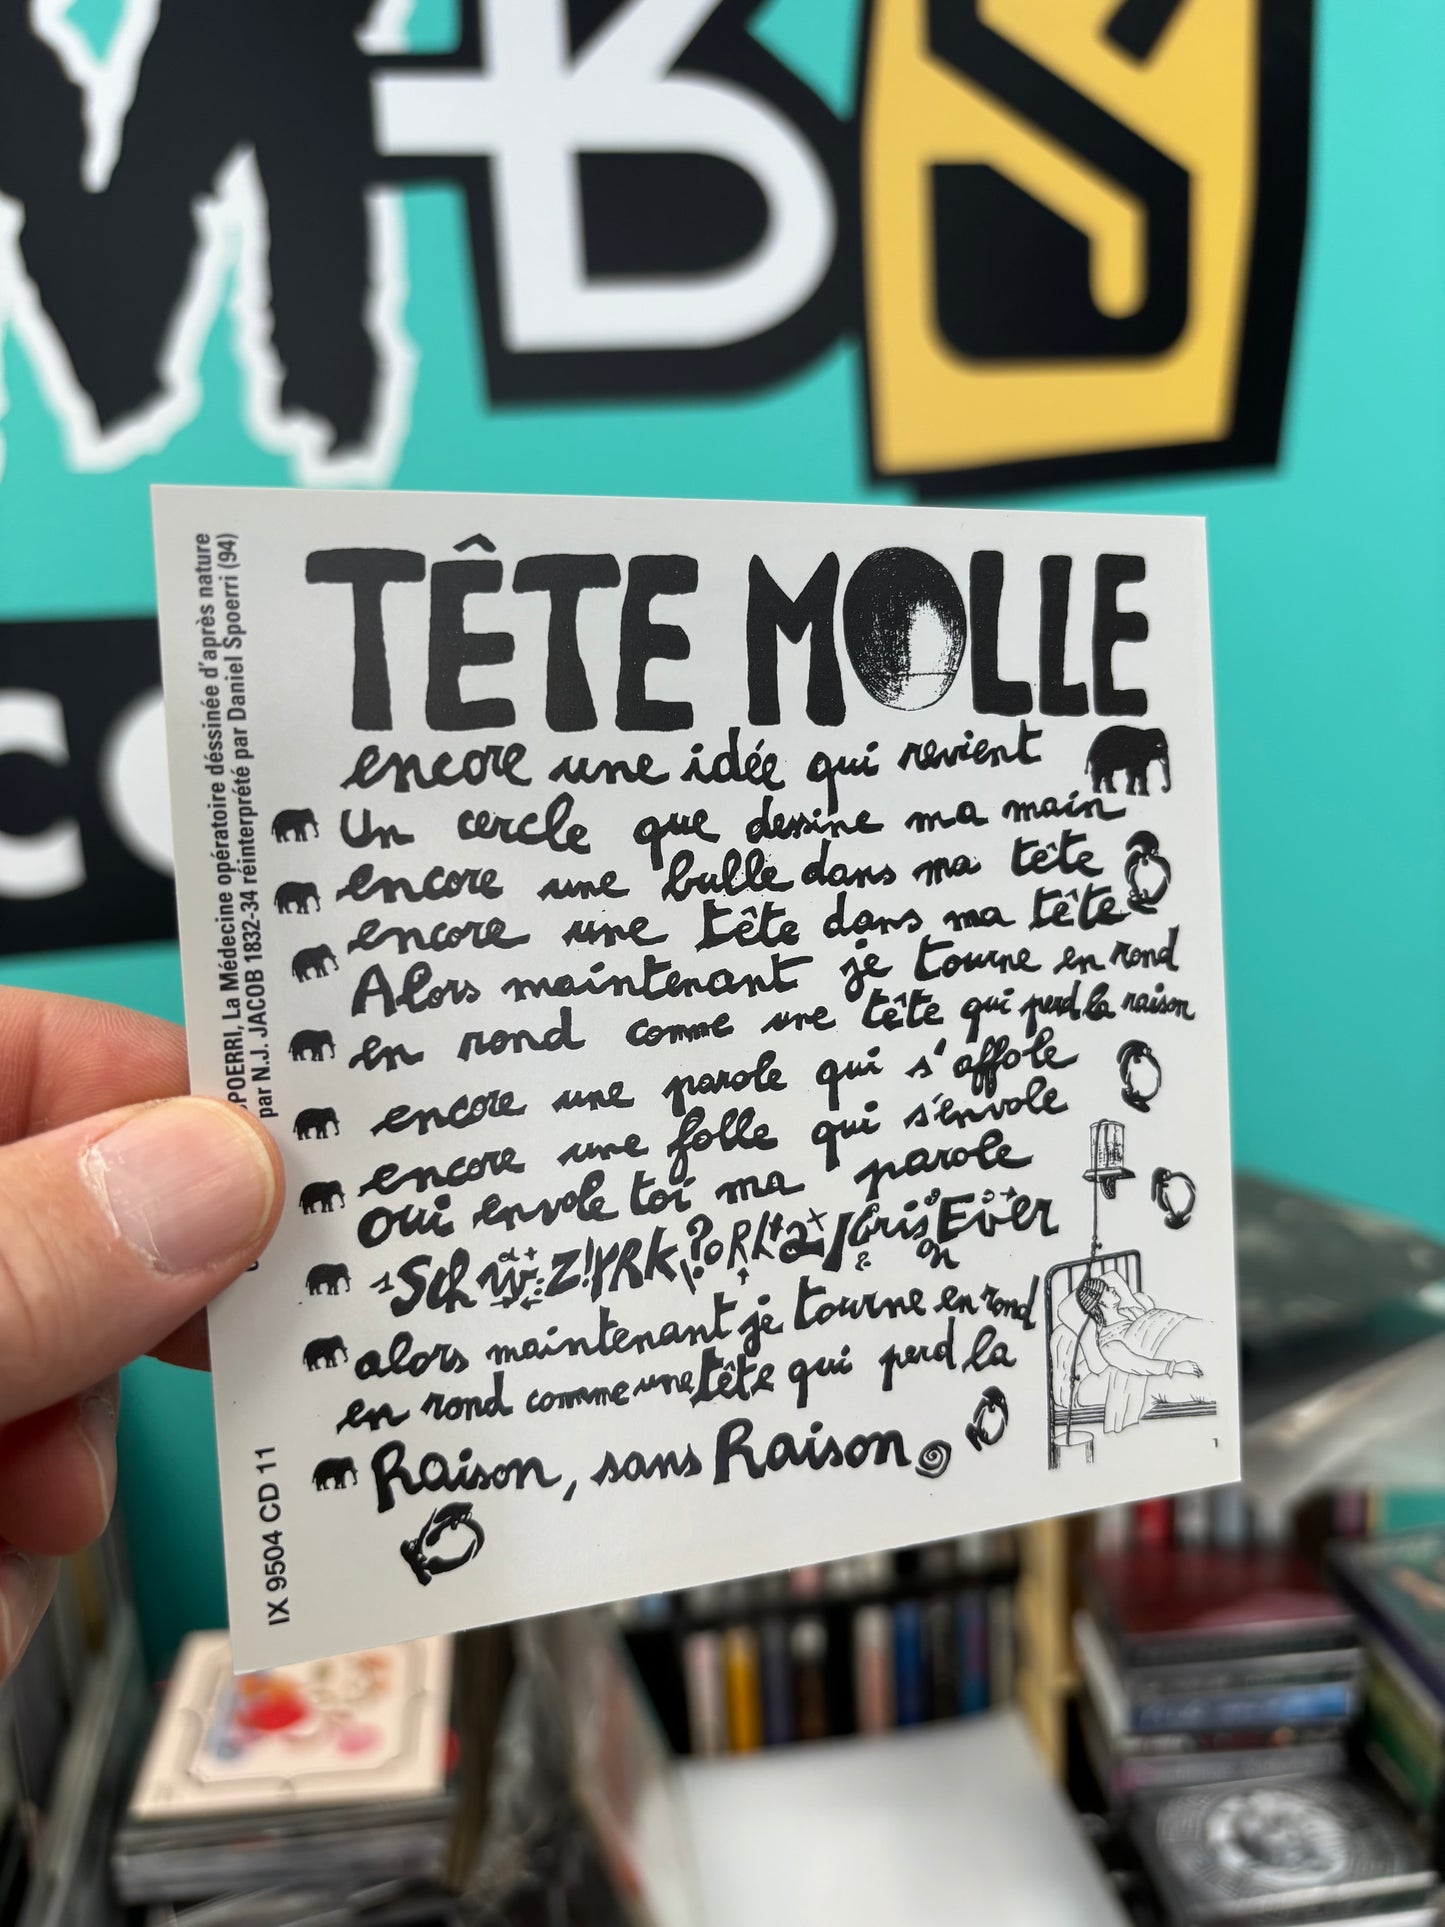 MBS
TÊTE MOLLE
encore une idée qui revient
Un cercle que dessine ma main
encore une bulle dans ma tête
encore une tête dans ma tête
Alors maintenant je tourne en rond
en rond comme une tête qui perd la raison
encore une parole qui s'affole
encore une folle qui s'envole
oui envole toi ma parole
alors maintenant je tourne en rond
en rond comme une tête qui perd la
Raison, sans Raison
1
POERRI, La Médecine opératoire déssinée d'après nature
par N.J. JACOB 1832-34 réinterprété par Daniel Spoerri (94)
IX 9504 CD 11